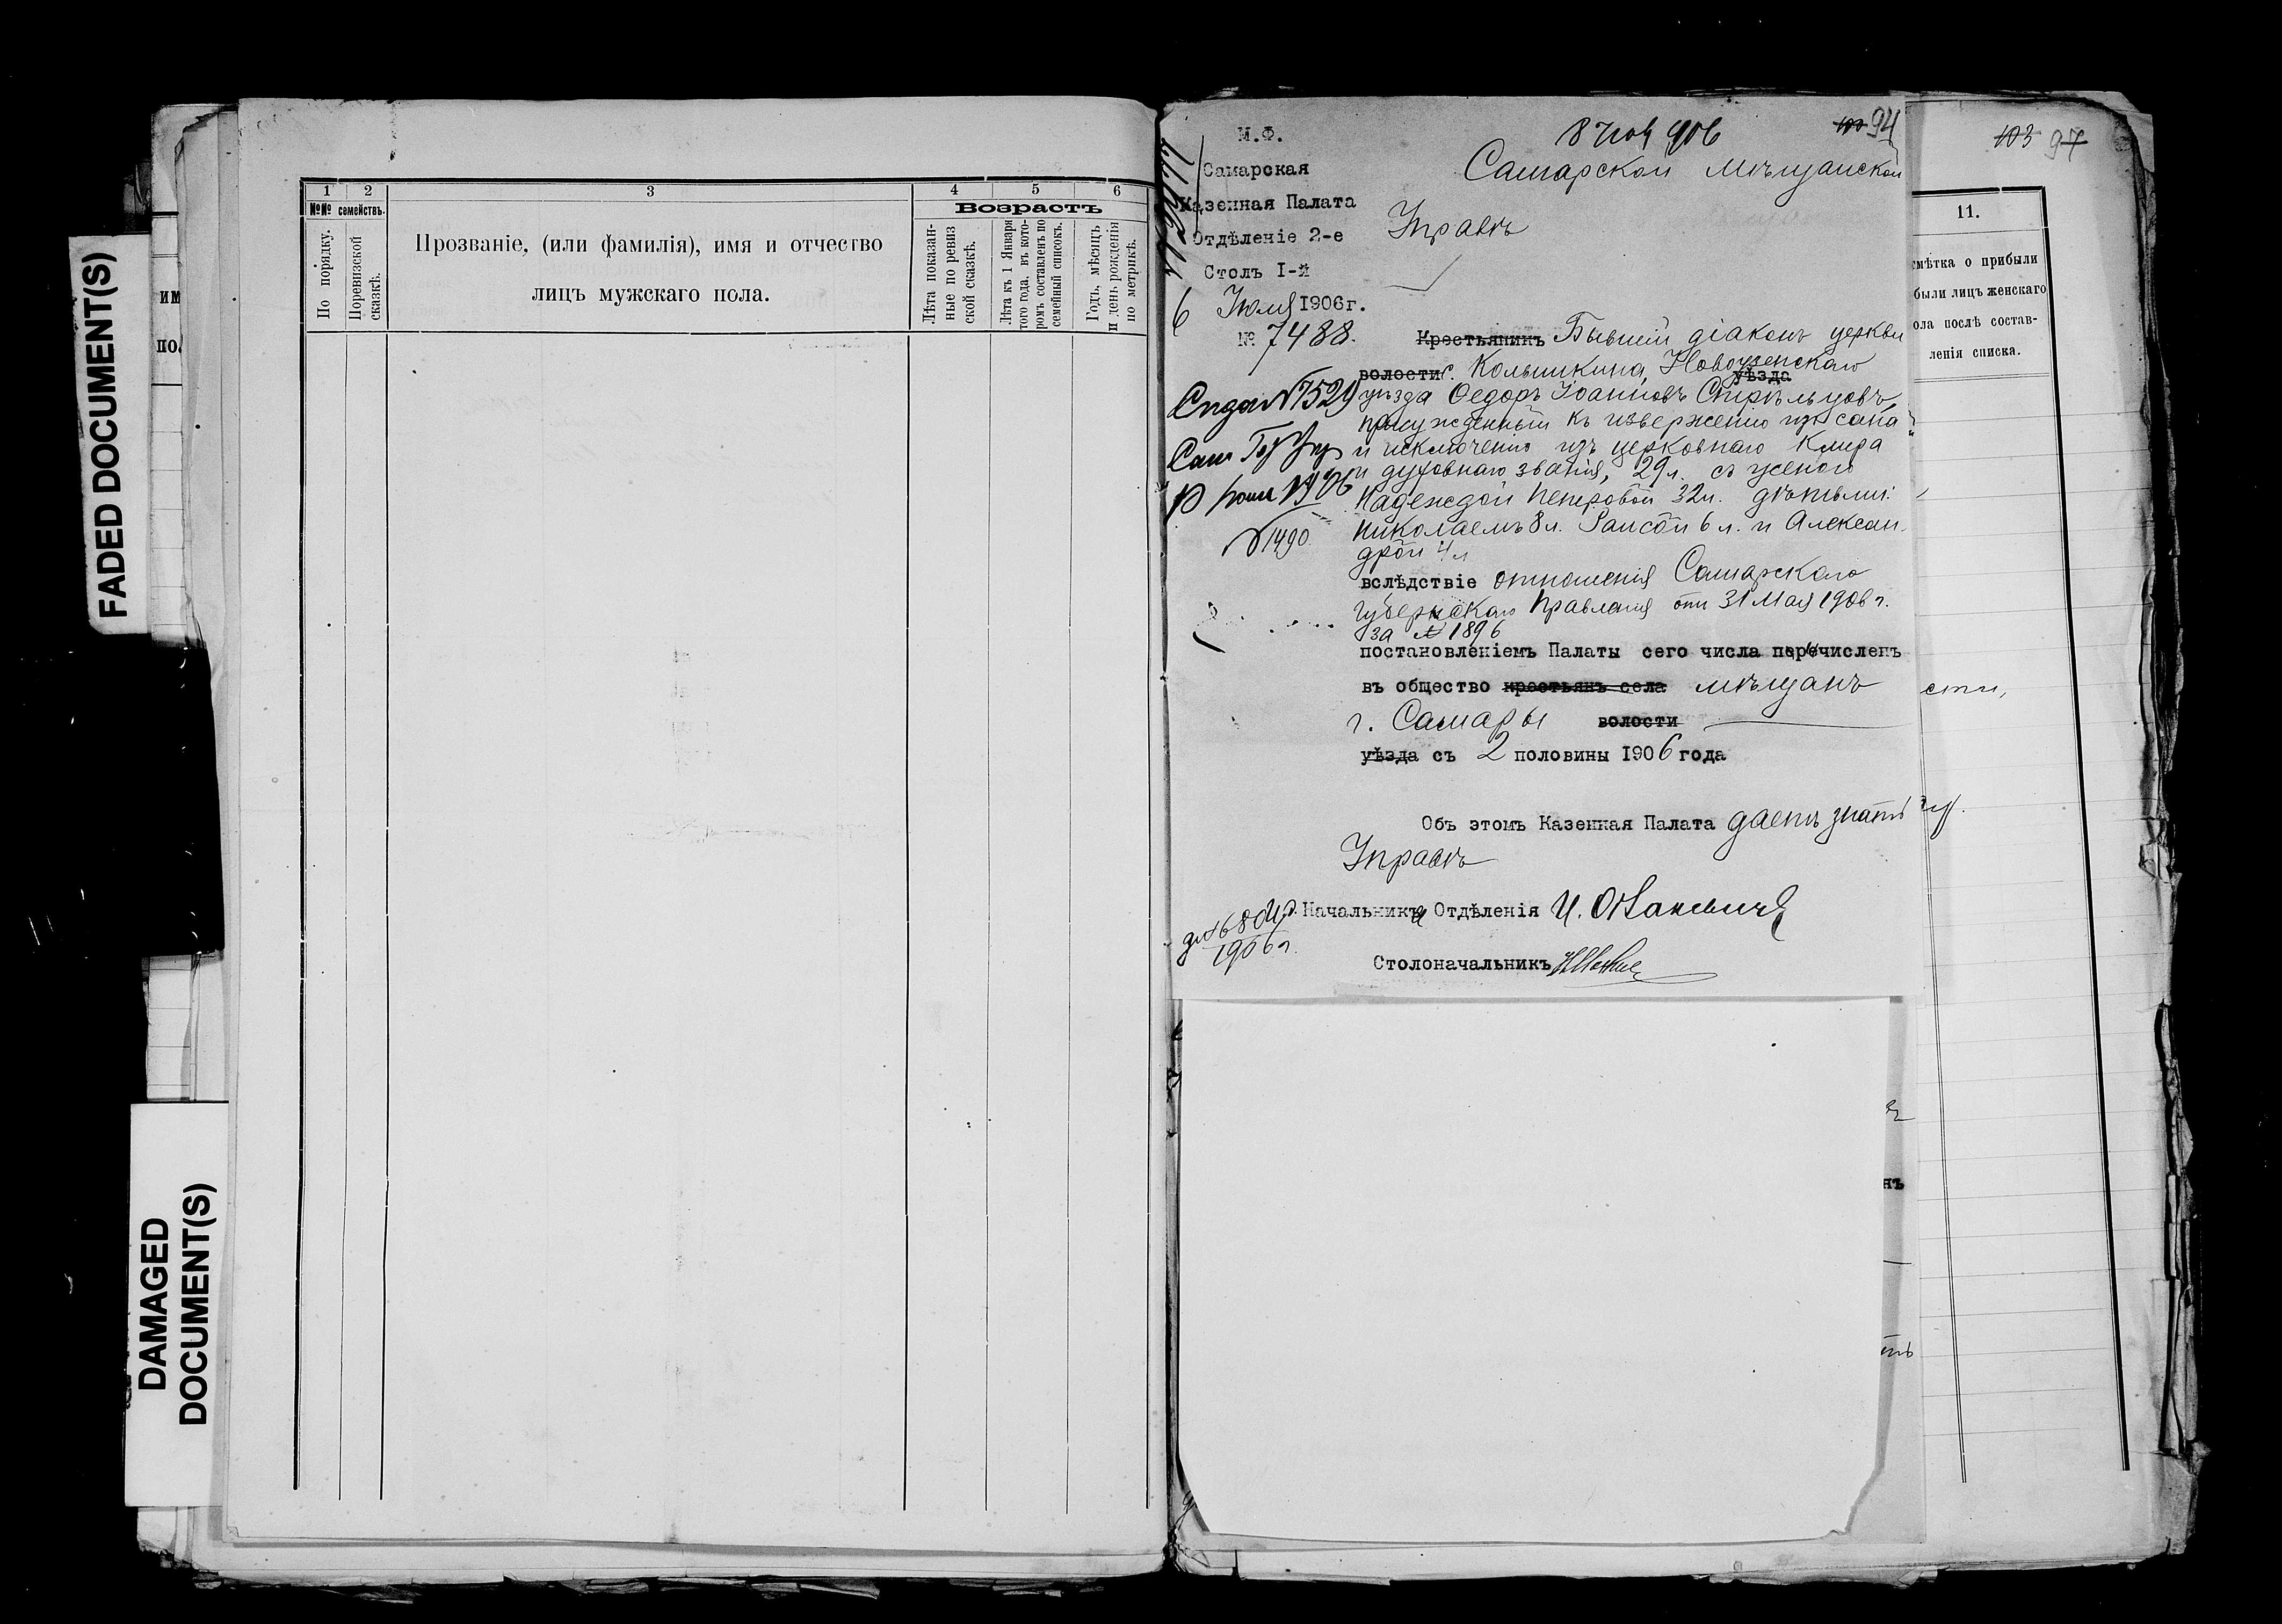 FADED DOCUMENT(S)
DAMAGED
DOCUMENT(S)
им
по
1 2 3 4 5 6
№№ семействъ.
Возрастъ
По порядку.
Поревизской
сказкѣ.
Прозваніе, (или фамилія), имя и отчество
лицъ мужскаго пола.
Лѣта показан-
ные по ревиз
ской сказкѣ.
Лѣта къ 1 Января
того года, въ кото-
ромъ составленъ по
семейный списокъ.
Годъ, мѣсяцъ
и день рожденія
по метрикѣ.
М.Ф.
Самарская
Казенная Палата
Отдѣленіе 2-е
Столъ I-й
6 Іюля 1906г.
№ 7488.
8 906
94
Самарской мѣщанской
Управѣ
Крестьянинъ Бывшій діаконъ церкви
волости с. Колышкина, Новоузенскаго
уѣзда
уѣзда Ѳедоръ Іоанновъ Стрѣльцовъ,
присужденный къ изверженію изъ сана
и исключенію изъ церковнаго клира
и духовнаго званія, 29л. съ женою
Надеждой Петровой 32л. дѣтьми:
Николаемъ 8л. Раисой 6л. и Алексан-
дрой 4л
вслѣдствіе отношенія Самарскаго
Губернскаго Правленія отъ 31 Мая 1906г.
за № 1896
постановленіемъ Палаты сего числа перечисленъ
въ общество крестьянъ села мѣщанъ
г. Самары волости
уѣзда съ 2 половины 1906 года
Объ этомъ Казенная Палата даетъ знать
Управѣ
Начальникъ Отдѣленія
Столоначальникъ
№7529
№1490
1906г.
103 97
11.
мѣтка о прибыли
были лицъ женскаго
ола послѣ состав-
ленія списка.
сти,
нъ
ть